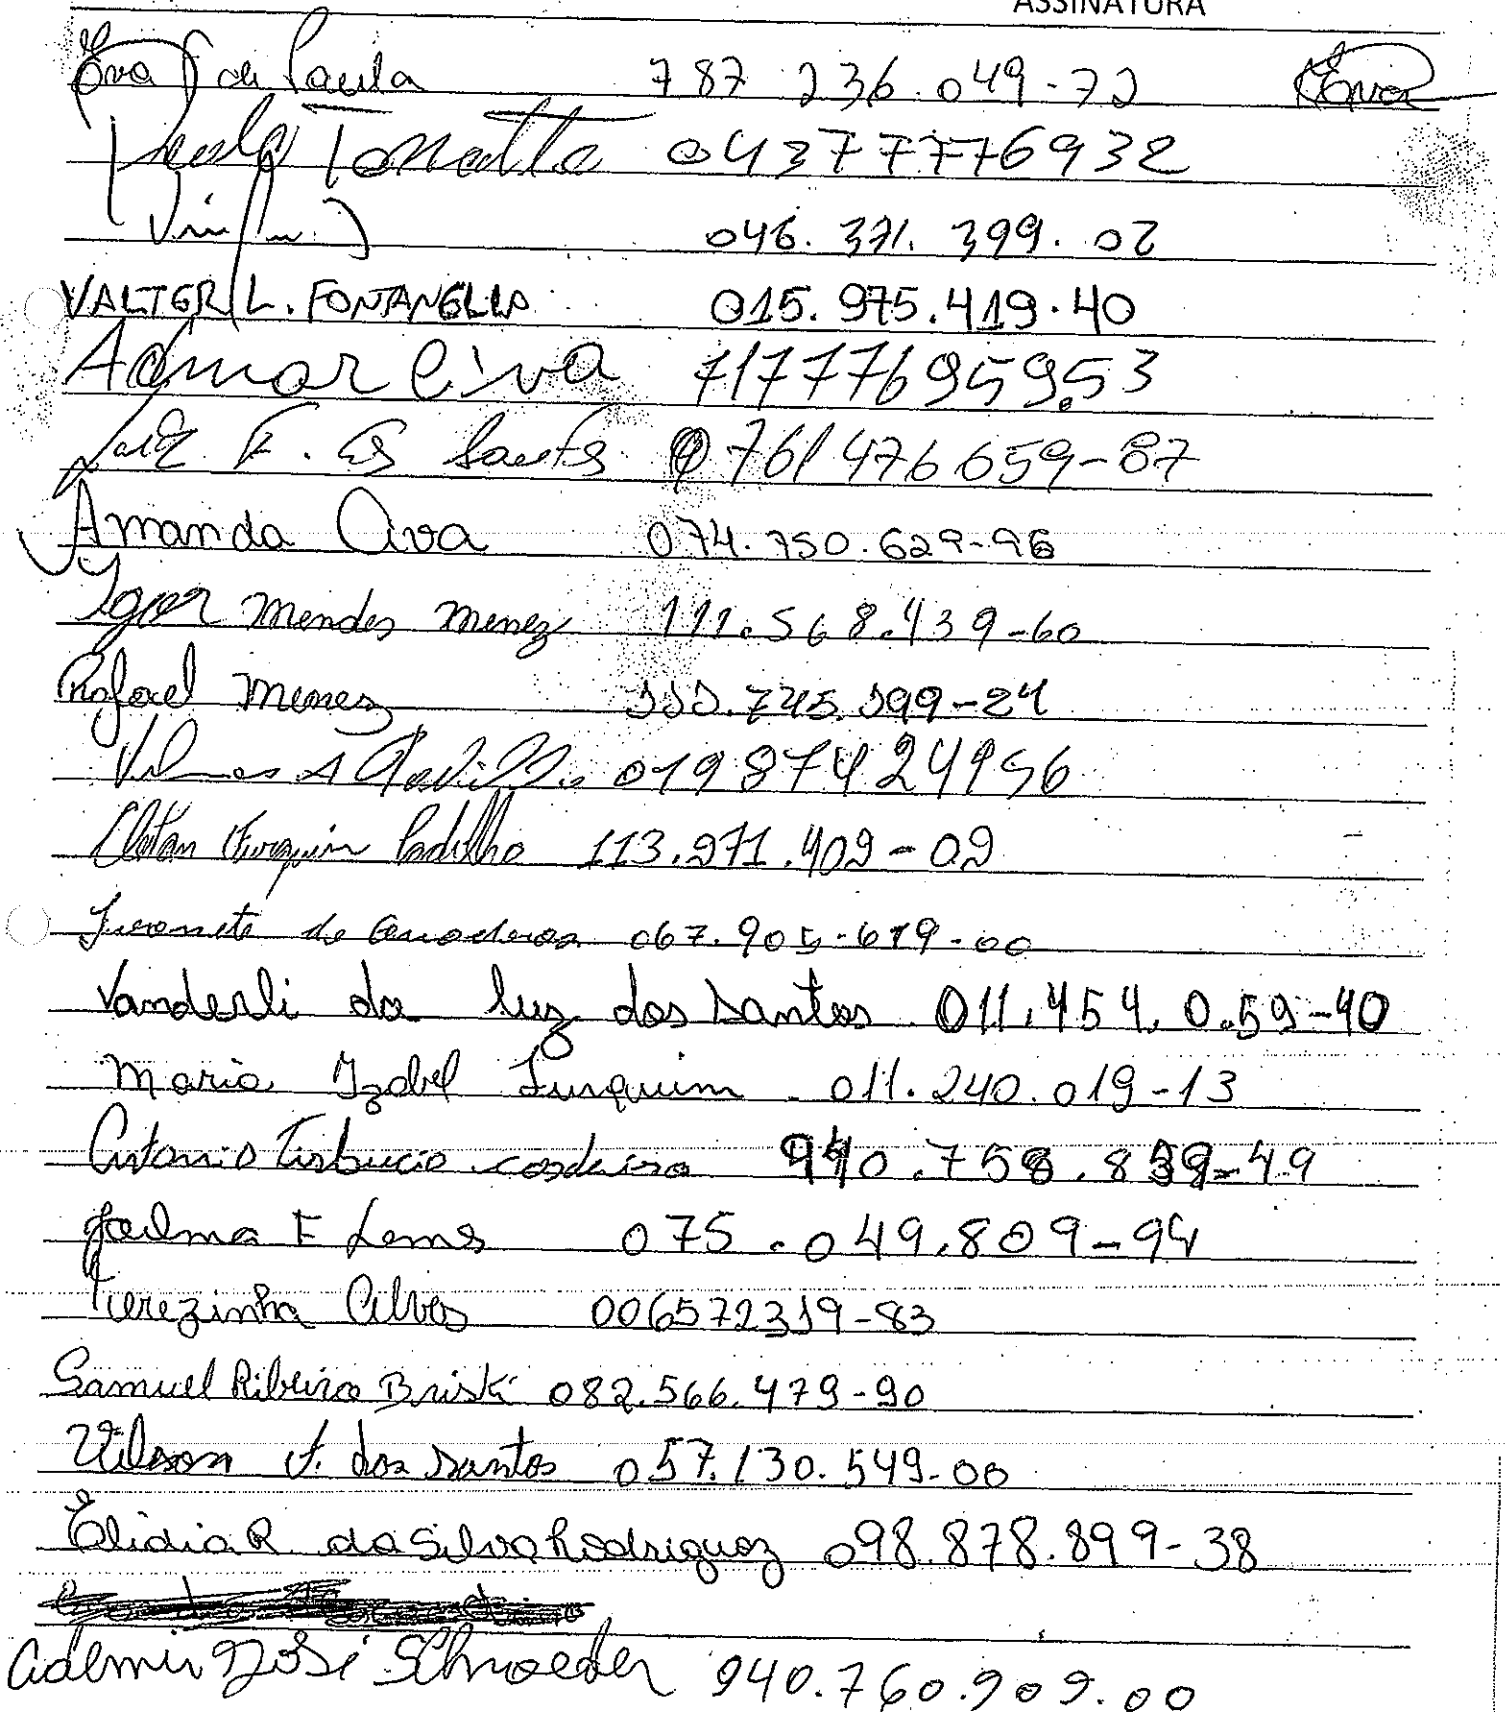 ASSINATURA
Eva de Paula 787 236.049-72 Eva
Tonatto 04377776932
046.371.399.02
VALTER L. FONTANELLA 015.975.419.40
Admar 71777695953
Luiz F. dos Santos 0761476659-87
Amanda 074.750.629-96
Igor Mendes Menez 111.568.439-60
Rafael Menez 111.745.199-24
01987424956
Turquim Padilha 113.971.409-09
067.905.619-00
Vanderli da luz dos Santos 011.454.0.59-40
Maria Izabel Turquim 011.240.019-13
Antonio Tirbucio cordeiro 940.758.839-49
F Lems 075.049.809-94
Terezinha Alves 006572319-83
Samuel Ribeiro Briski 082.566.479-90
Wilson J. dos Santos 057.130.549-00
Elidia R. da Silva Rodriguez 098.878.899-38
Ademir José Schroeder 940.760.909.00